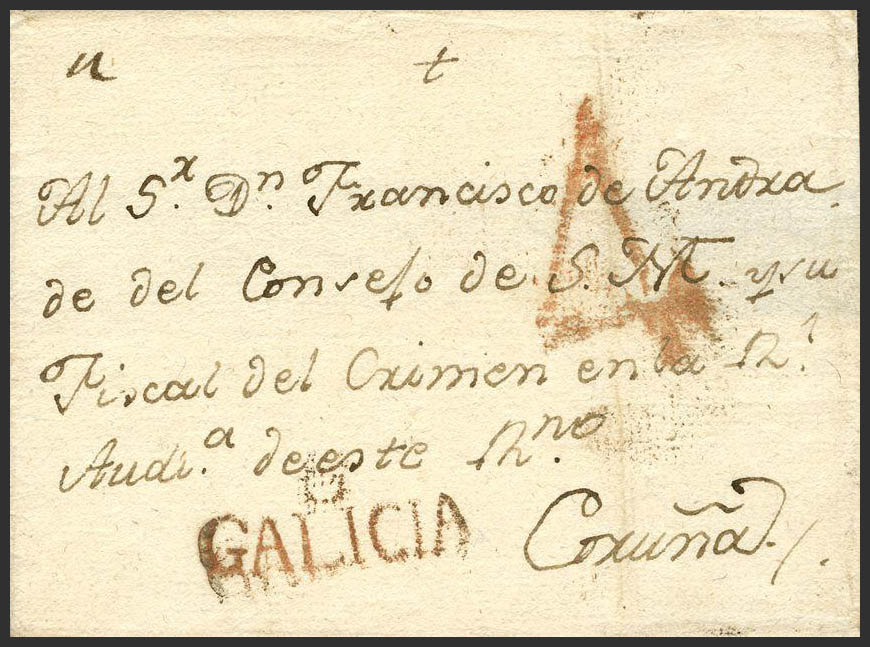 u +
4
Al S.r Dn. Francisco de Andra
de del Consejo de S. M. y su
Fiscal del Crimen en la R.l
Audi.a de este R.no
GALICIA
Coruña